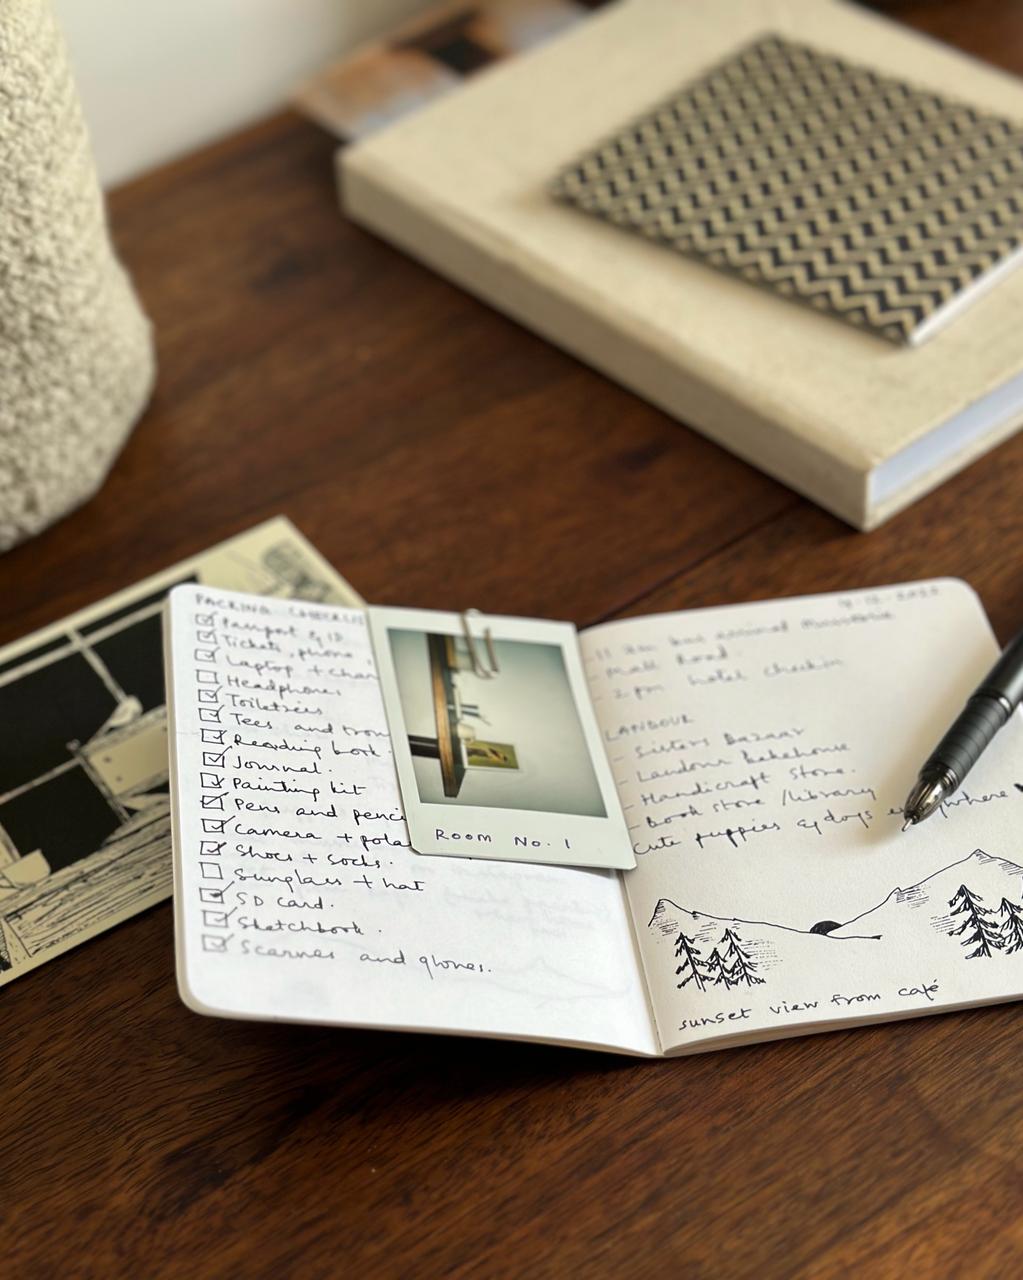 PACKING CHECKLIS
Passport & ID
Tickets, phone,
Laptop + char
Headphones
Toiletries
Tees and trou
Reading book
Journal.
Painting kit
Pens and penci
Camera + pola
Shoes + socks.
Sunglass + hat
SD card.
Sketchbook.
Scarves and gloves.
ROOM No. 1
- 11 am bus arrival Mussoorie
- Mall Road
- 2 pm hotel checkin
LANDOUR
- Sisters Bazaar
- Landour Bakehouse
- Handicraft store.
- Book store /library
Cute puppies & dogs
sunset view from café